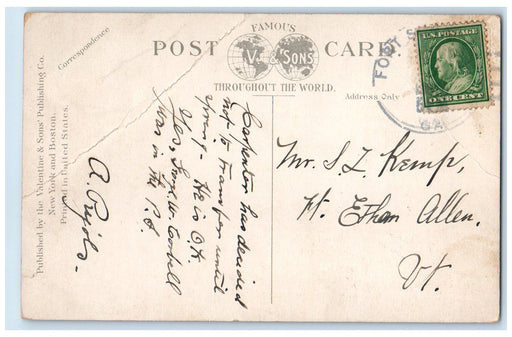 Correspondence
FAMOUS
POST CARD.
V. & SONS
THROUGHOUT THE WORLD.
Address Only
Published by the Valentine & Sons' Publishing Co.
New York and Boston.
Printed in United States.
U.S. POSTAGE
ONE CENT
FORT S
CA
Carpenter has decided
not to transfer until
spring - He is O.K.
Yes,
was in the P.I.
A.
Mr. S. L. Kemp,
Ft. Ethan Allen.
Vt.